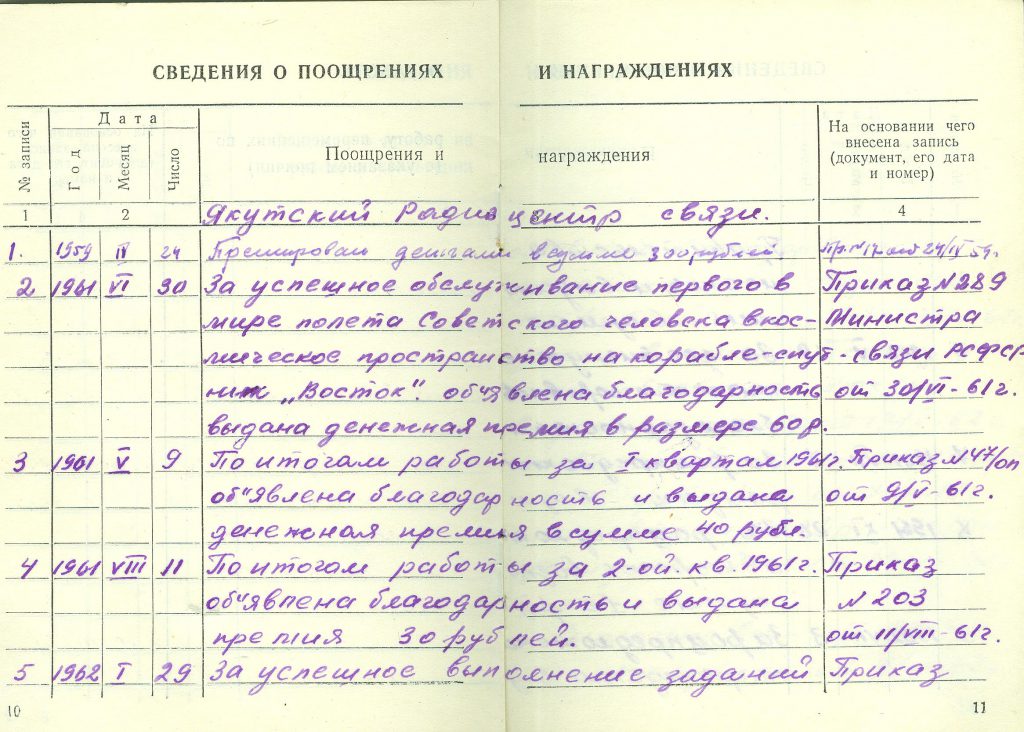 СВЕДЕНИЯ О ПООЩРЕНИЯХ И НАГРАЖДЕНИЯХ
№ записи
Дата
Год
Месяц
Число
Поощрения и награждения
На основании чего
внесена запись
(документ, его дата
и номер)
1 2 4
Якутский Радиоцентр связи.
1. 1959 IV 24 Премирован деньгами в сумме 300 рублей Пр. №17 от 24/IV 59г.
2 1961 VI 30 За успешное обслуживание первого в Приказ №289
мире полета Советского человека в кос- Министра
мическое пространство на корабле-спут- связи РСФСР
ник „Восток". об'явлена благодарность от 30/VI-61г.
выдана денежная премия в размере 60р.
3 1961 V 9 По итогам работы за I квартал 1961г. Приказ №47/оп
об'явлена благодарность и выдана от 9/V-61г.
денежная премия в сумме 40 рубл.
4 1961 VIII 11 По итогам работы за 2-ой. кв. 1961г. Приказ
об'явлена благодарность и выдана №203
премия 30 рублей. от 11/VIII-61г.
5 1962 I 29 За успешное выполнение заданий Приказ
10 11